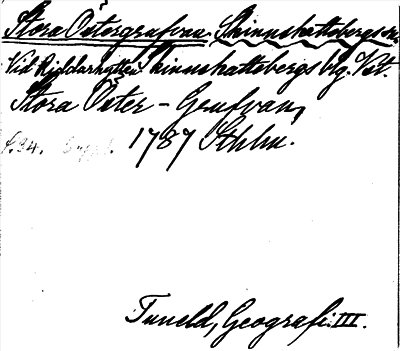 Stora Östergrufvan. Skinnskattebergs sn.
Vid Riddarhyttan Skinnskattebergs blg. Vst.
Stora Öster-Grufvan,
f.34. 1787 Sthlm.
Tuneld, Geografi. III.